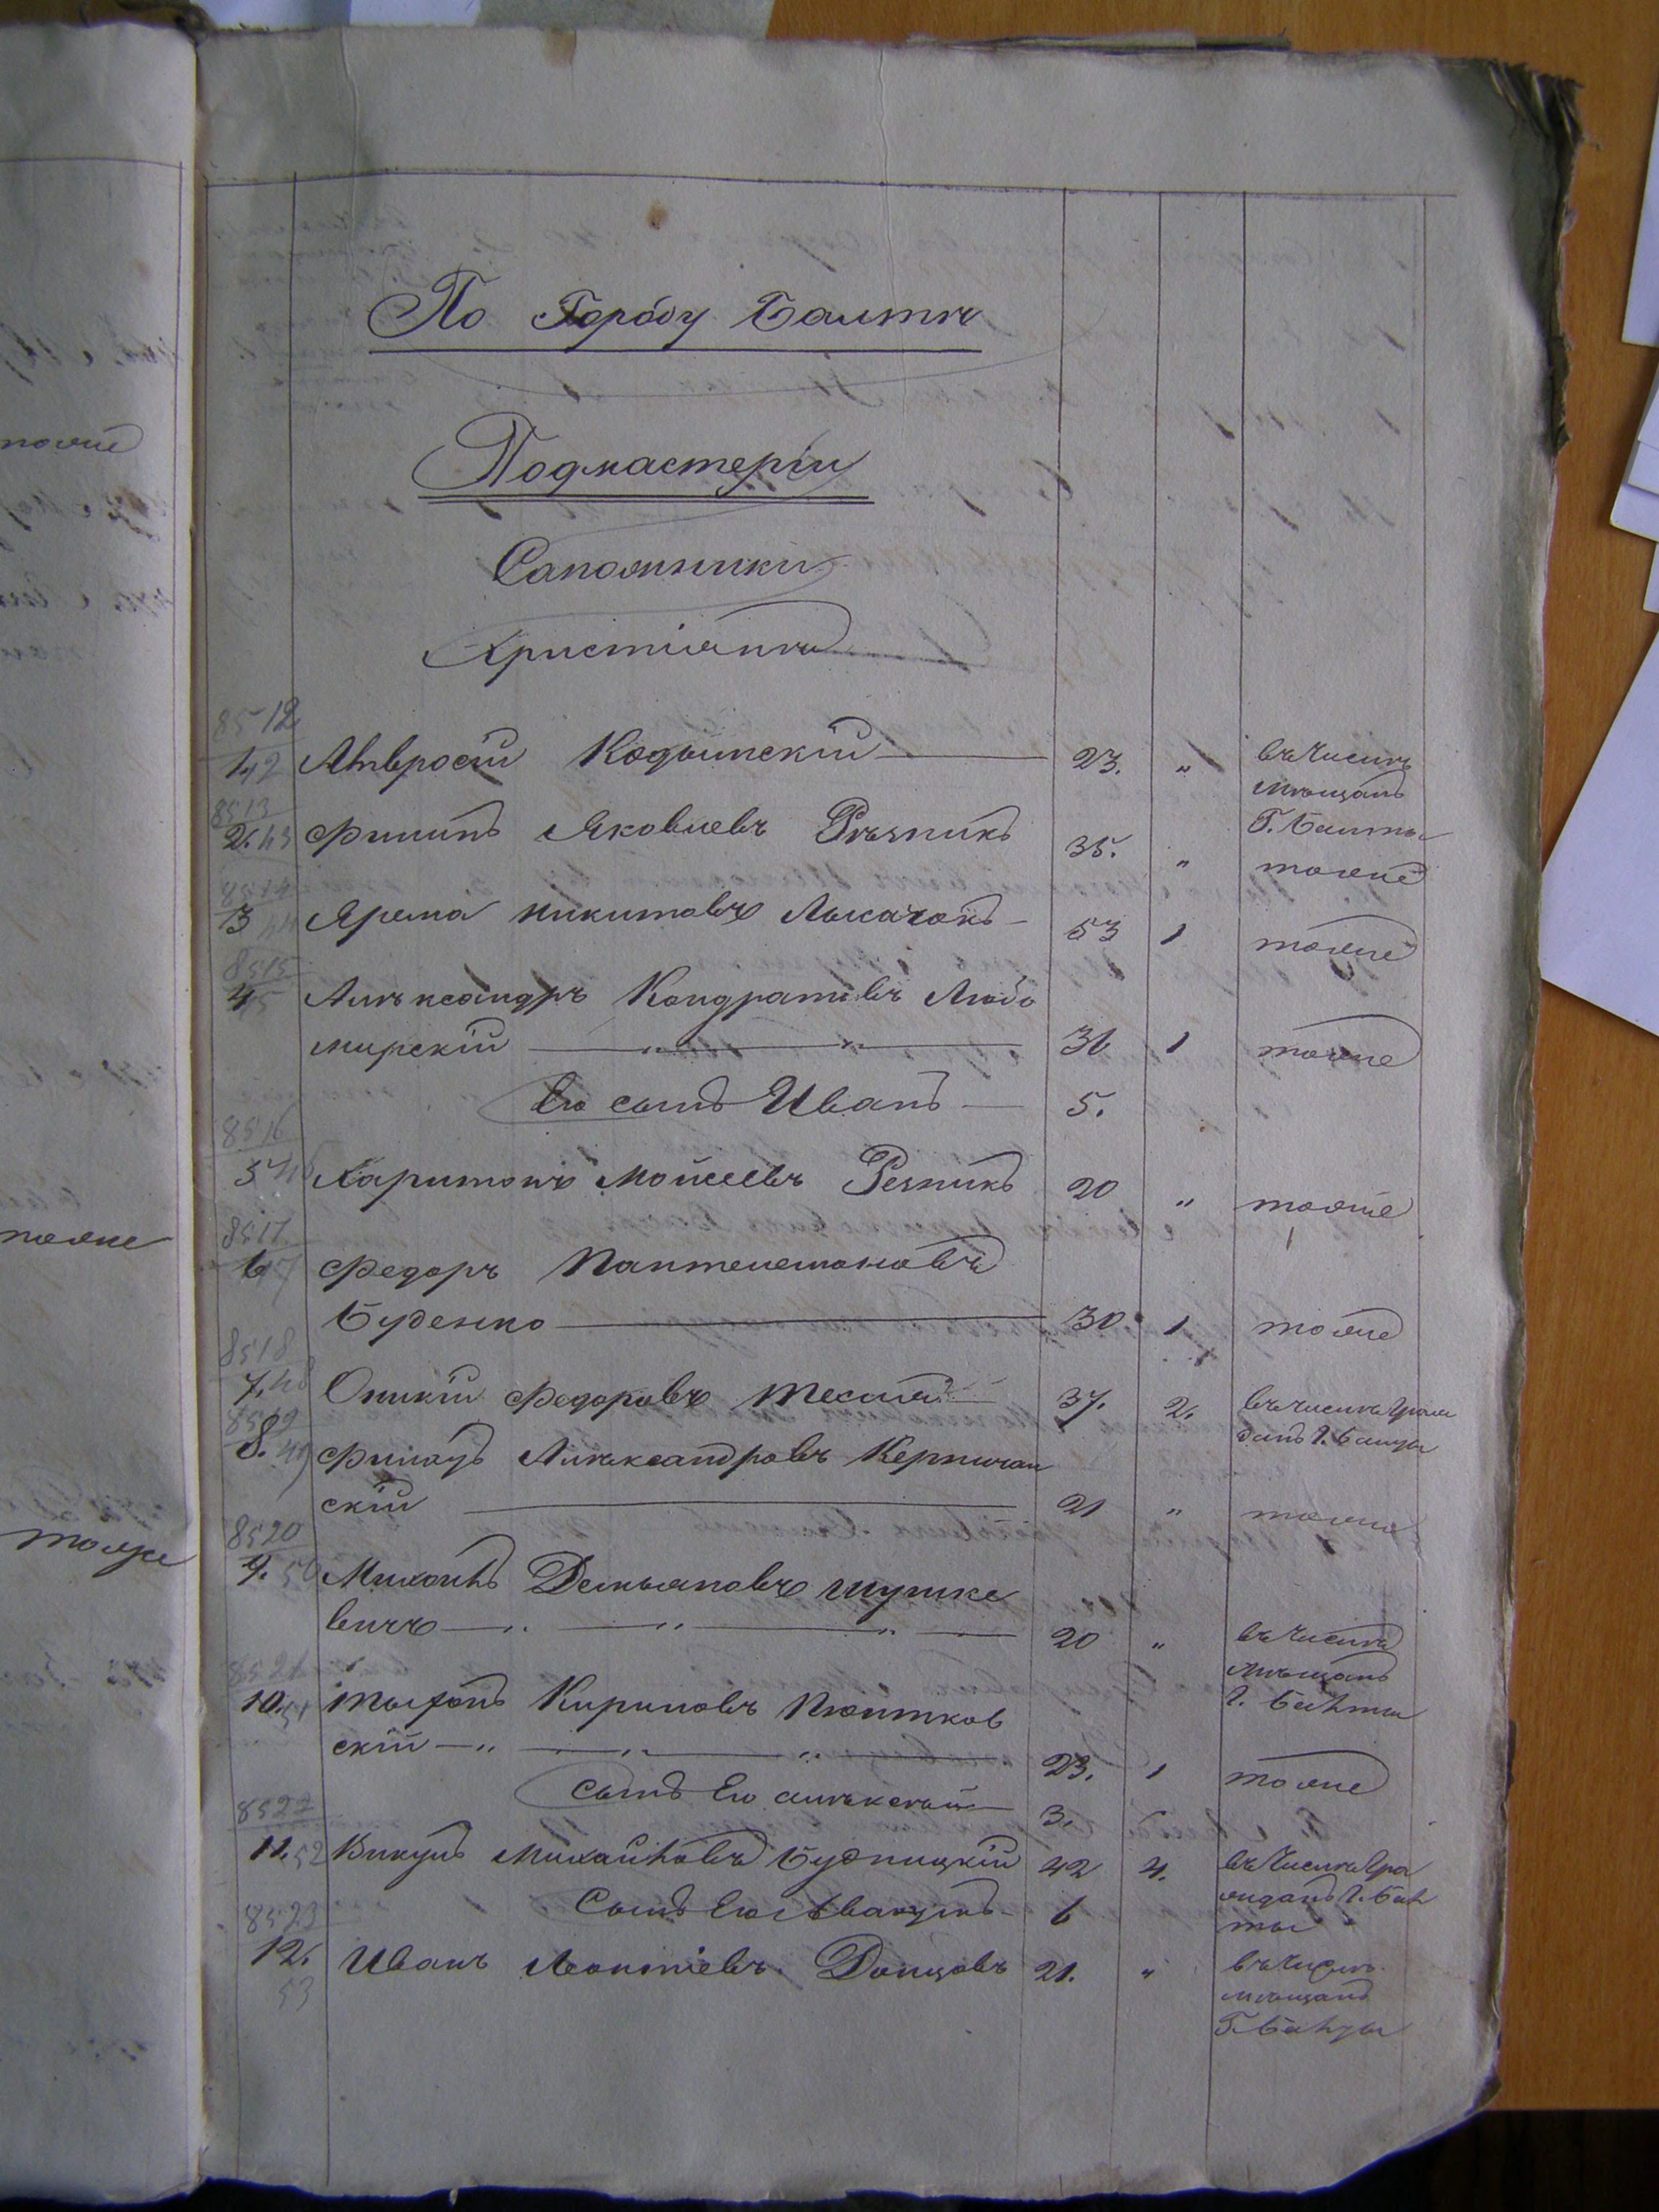 По Городу Балтѣ
Подмастеріи
Сапожники
Христіянѣ
8512
1, 42 Амвросій Кодымскій 23. „ въ числѣ
мѣщанъ
Г. Балты
8513
2. 43 Филипъ Яковлевъ Рѣзникъ 35. „ тожне
8514
3 44 Ярема Никитовъ Лысачокъ 53 1 тожне
8515
4 45 Алѣксандръ Кондратіевъ Любо
мирскій „ „ 36 1 тожне
Его сынъ Иванъ 5.
8516
5 46 Харитонъ Мойсеевъ Резникъ 20 „ тожне
8517
6 47 Федоръ Пантелемоновъ
Буденко 30 1 тожне
8518
7. 48 Оникій Федоровъ Тесля 37. 2. въ числѣ граж
данъ Г. Балты
8519
8. 49 Филатъ Алѣксандровъ
скій 21 „ тожне
8520
9. 50 Михаилъ Демьяновъ Шушке
вичъ „ „ „ 20 „ въ числѣ
мѣщанъ
Г. Балты
8521
10. 51 Кириловъ
скій „ „ „ 23. 1 тожне
Сынъ Его Алѣксѣй 3.
8522
11. 52 Викулъ Михайловъ Будницкій 42 4. въ числѣ гра
жданъ Г. Бал
ты
Сынъ Его Авакумъ 6
8523
12. 53 Иванъ Леонтіевъ Донцовъ 21. „ въ числѣ
мѣщанъ
Г. Балты
тожне
тожне
тожже